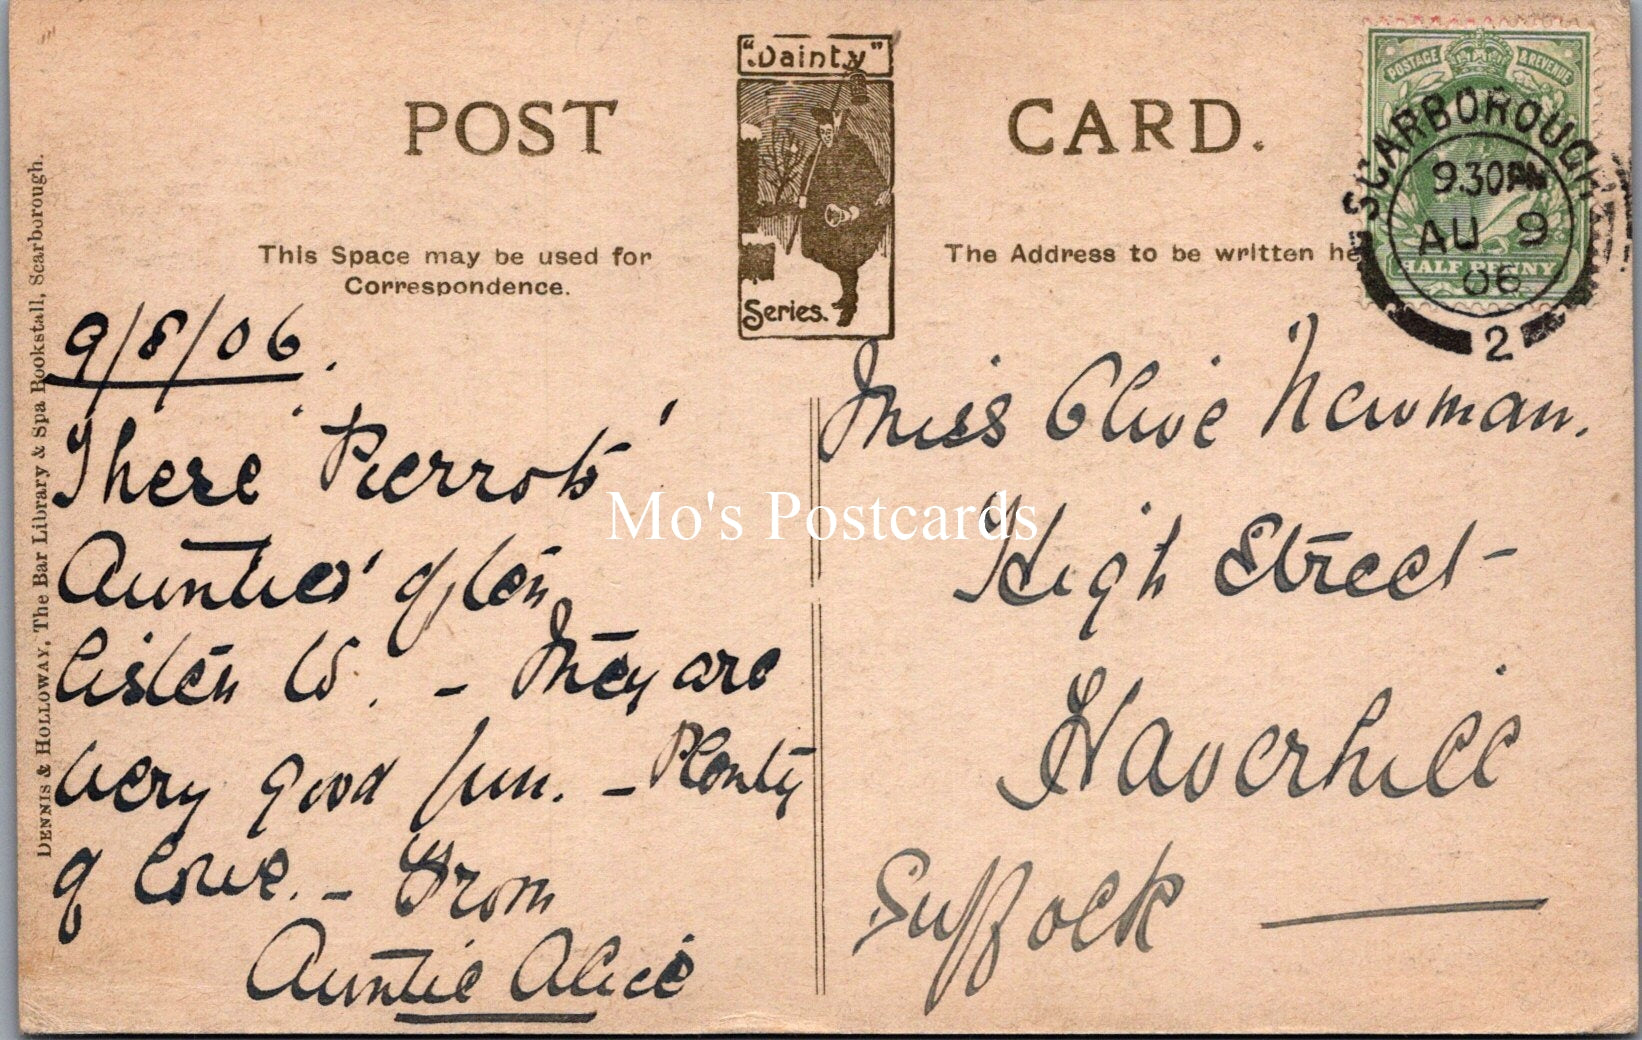 "Dainty"
Series.
POST CARD.
This Space may be used for
Correspondence.
The Address to be written he
SCARBOROUGH
9.30PM
AU 9
06
2
POSTAGE & REVENUE
HALFPENNY
DENNIS & HOLLOWAY, The Bar Library & Spa Bookstall, Scarborough.
9/8/06.
These 'Pierrots'
Aunties' often
listen to. - They are
very good fun. - Plenty
of love. - From
Auntie Alice
Miss Olive Newman.
High Street
Haverhill
Suffolk
Mo's Postcards